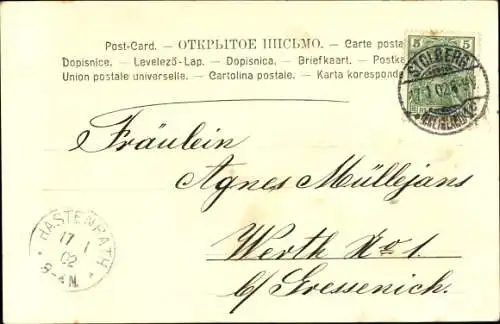 Post-Card. — ОТКРЫТОЕ ПИСЬМО. — Carte posta
Dopisnice. — Levelező-Lap. — Dopisnica. — Briefkaart. — Postka
Union postale universelle. — Cartolina postale. — Karta koresponde
5 5
STOLBERG
1 02
(RHEINLAND)
Fräulein
Agnes Müllejans
Werth No 1.
b/ Gressenich.
HASTENRATH
17 1
02
8-9 N.